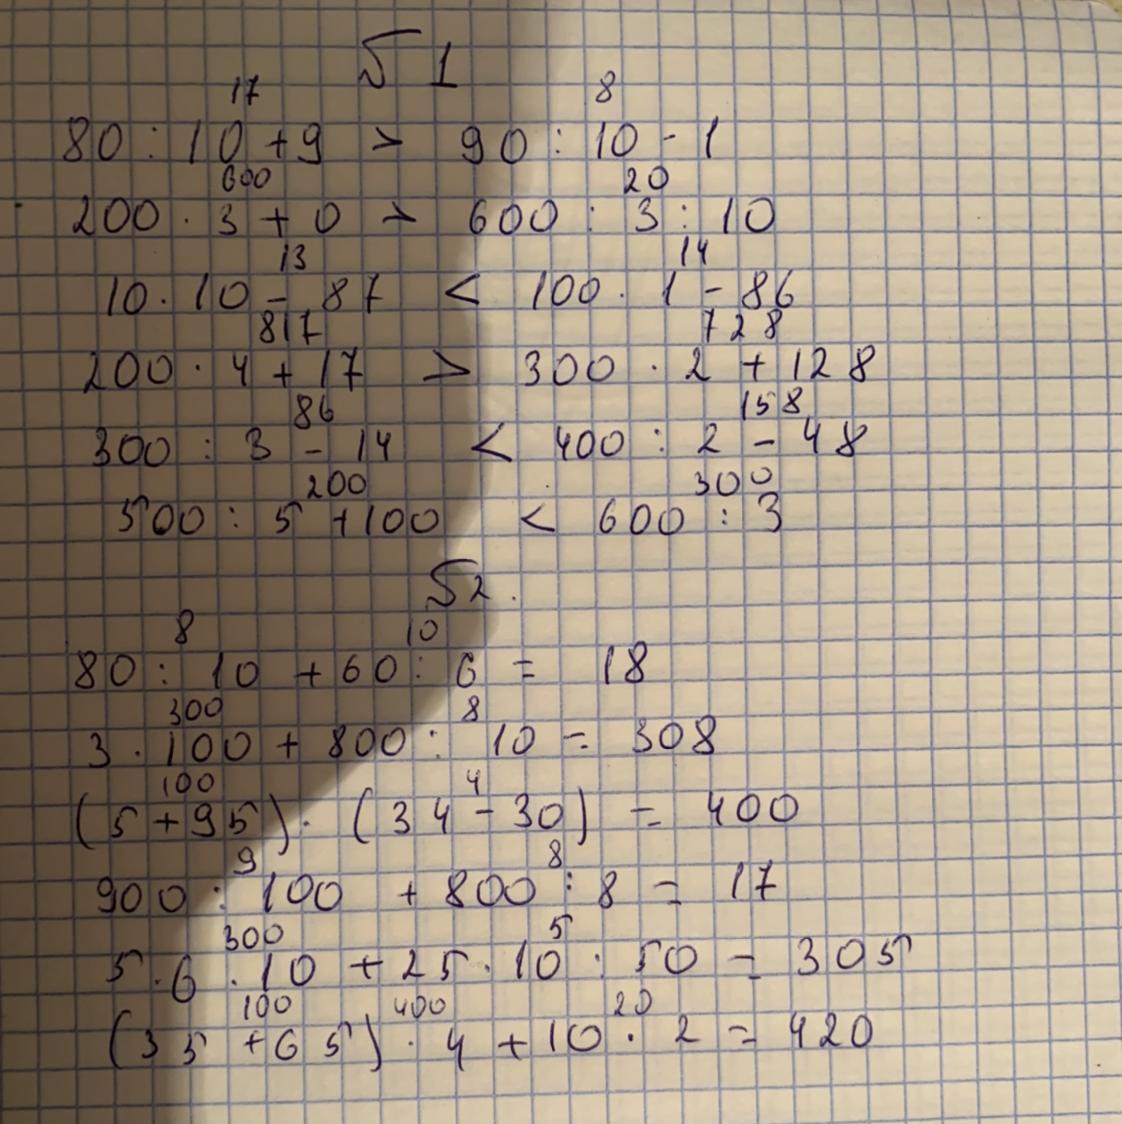 √ 1
17 8
80 : 10 + 9 > 90 : 10 - 1
600 20
200 · 3 + 0 > 600 : 3 : 10
13 14
10 · 10 - 87 < 100 · 1 - 86
817 728
200 · 4 + 17 > 300 · 2 + 128
86 158
300 : 3 - 14 < 400 : 2 - 48
200 300
500 : 5 + 100 < 600 : 3
√ 2.
8 10
80 : 10 + 60 : 6 = 18
300 8
3 · 100 + 800 : 10 = 308
100 4
(5 + 95) · (34 - 30) = 400
9 8
900 : 100 + 800 : 8 = 17
300 5
5 · 6 · 10 + 25 · 10 : 50 = 305
100 400 20
(35 + 65) · 4 + 10 · 2 = 420